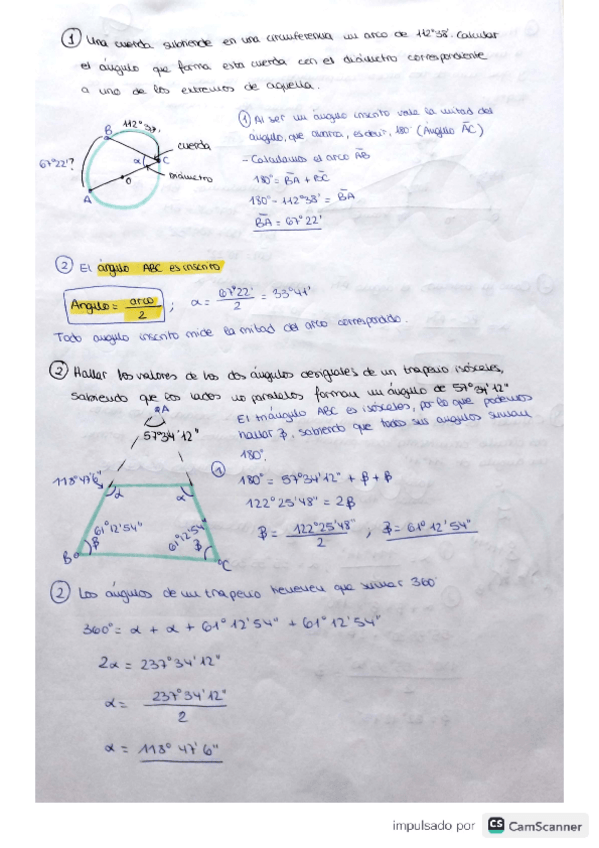 ① Una cuerda subtiende en una circunferencia un arco de 112°38'. Calcular
el ángulo que forma esta cuerda con el diámetro correspondiente
a uno de los extremos de aquella.
112°38'
B
cuerda
67°22'?
α
C
diámetro
O
A
① Al ser un ángulo inscrito vale la mitad del
ángulo, que abarca, es decir, 180° (Ángulo AC)
- Calculamos el arco AB
180° = BA + BC
180° - 112°38' = BA
BA = 67°22'
② El ángulo ABC es inscrito
Angulo = arco/2 ; α = 67°22'/2 = 33°41'
Todo angulo inscrito mide la mitad del arco correspondido.
② Hallar los valores de los dos ángulos desiguales de un trapecio isósceles,
sabiendo que los lados no paralelos forman un ángulo de 57°34'12"
A
57°34'12"
El triángulo ABC es isósceles, por lo que podemos
hallar β, sabiendo que todos sus angulos suman
180°.
① 180° = 57°34'12" + β + β
122°25'48" = 2β
β = 122°25'48"/2 ; β = 61°12'54"
118°47'6"
α
α
61°12'54"
61°12'54"
B
β
β
C
② Los ángulos de un trapecio tienen que sumar 360°
360° = α + α + 61°12'54" + 61°12'54"
2α = 237°34'12"
α = 237°34'12"/2
α = 118° 47' 6"
impulsado por CS CamScanner